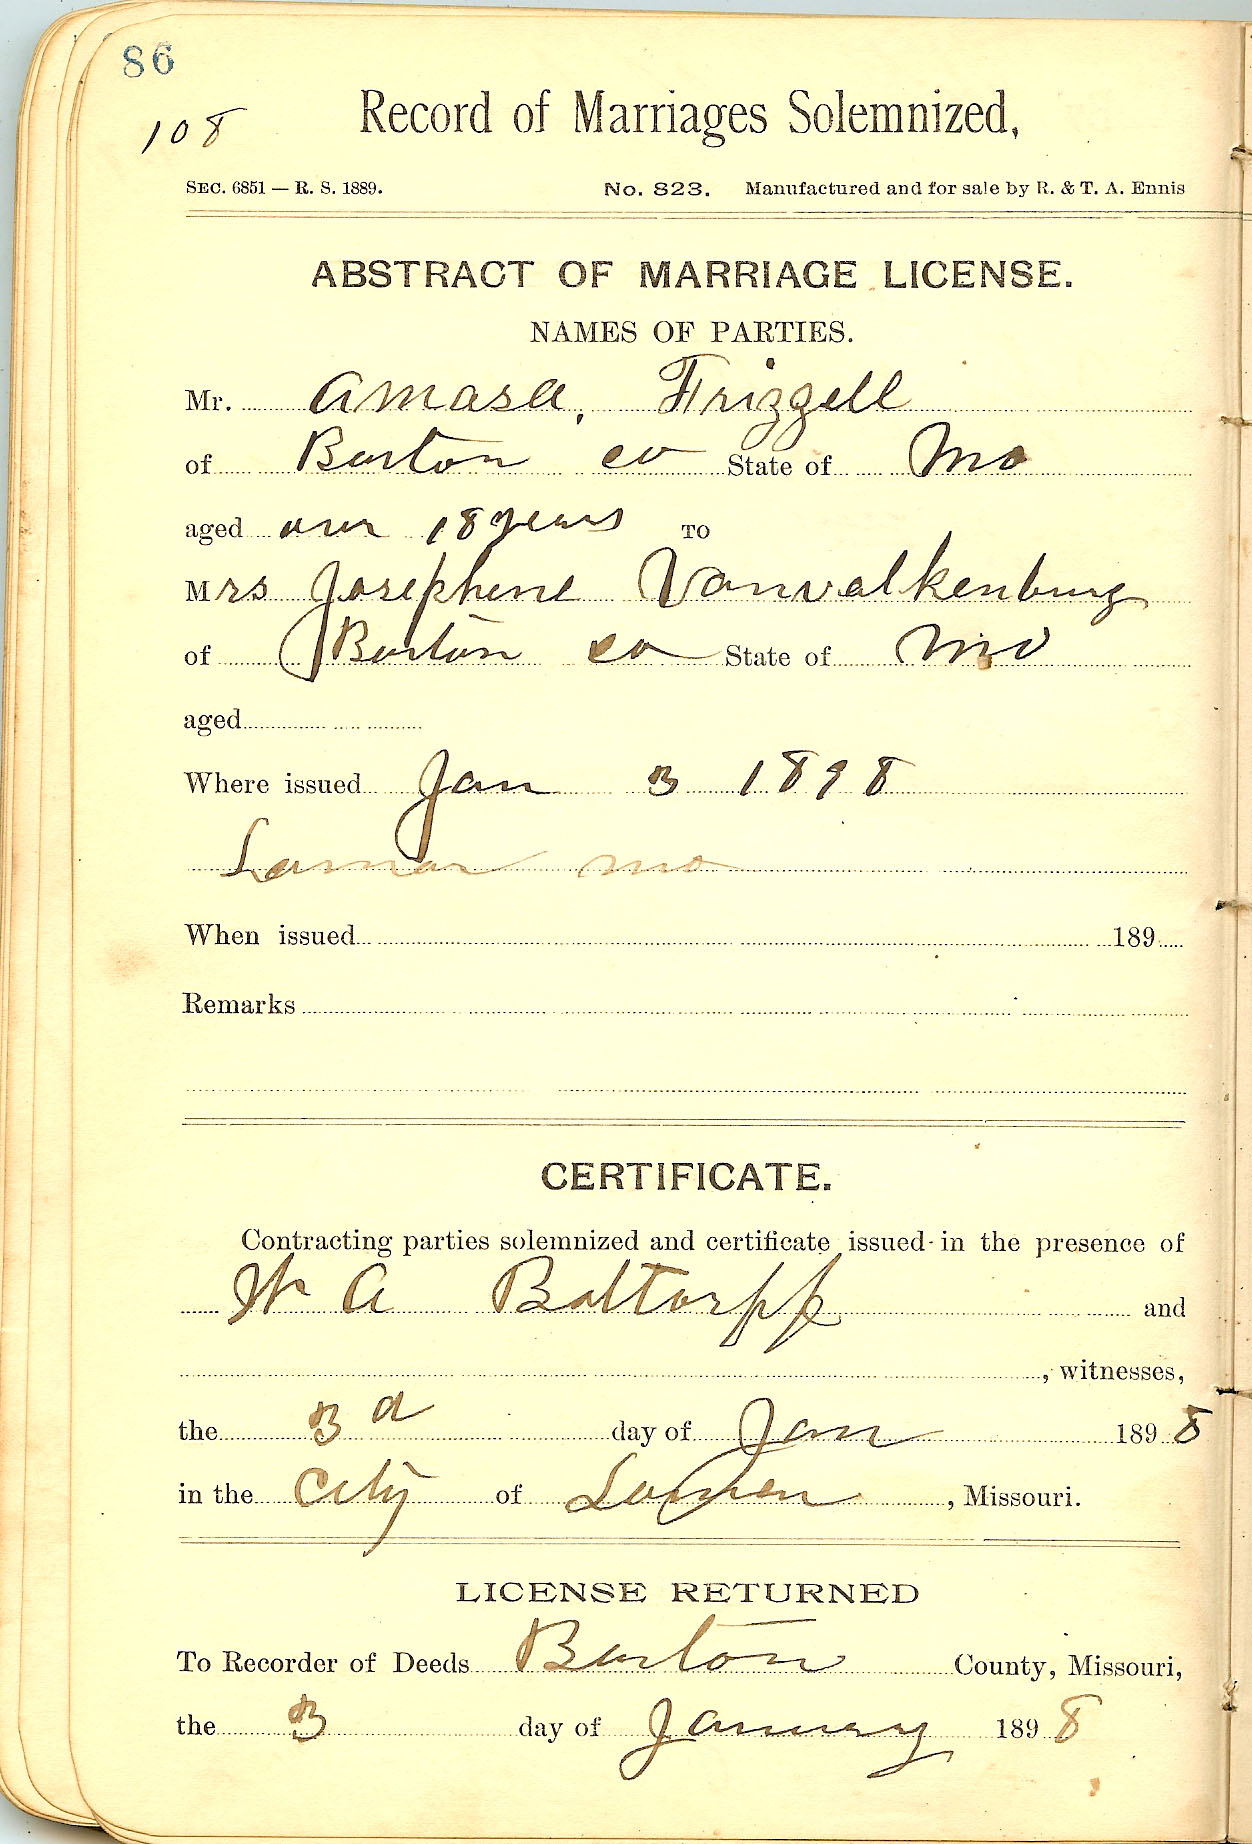 86
108
Record of Marriages Solemnized,
SEC. 6851 — R. S. 1889. No. 823. Manufactured and for sale by R. & T. A. Ennis
ABSTRACT OF MARRIAGE LICENSE.
NAMES OF PARTIES.
Mr. Amasa, Frizzell
of Barton co State of Mo
aged over 18 years TO
Mrs Josephene Vanvalkenburg
of Barton co State of Mo
aged
Where issued Jan 3 1898
Lamar Mo
When issued 189
Remarks
CERTIFICATE.
Contracting parties solemnized and certificate issued in the presence of
W A and
, witnesses,
the 3d day of Jan 1898
in the City of Lamar, Missouri.
LICENSE RETURNED
To Recorder of Deeds Barton County, Missouri,
the 3 day of January 1898